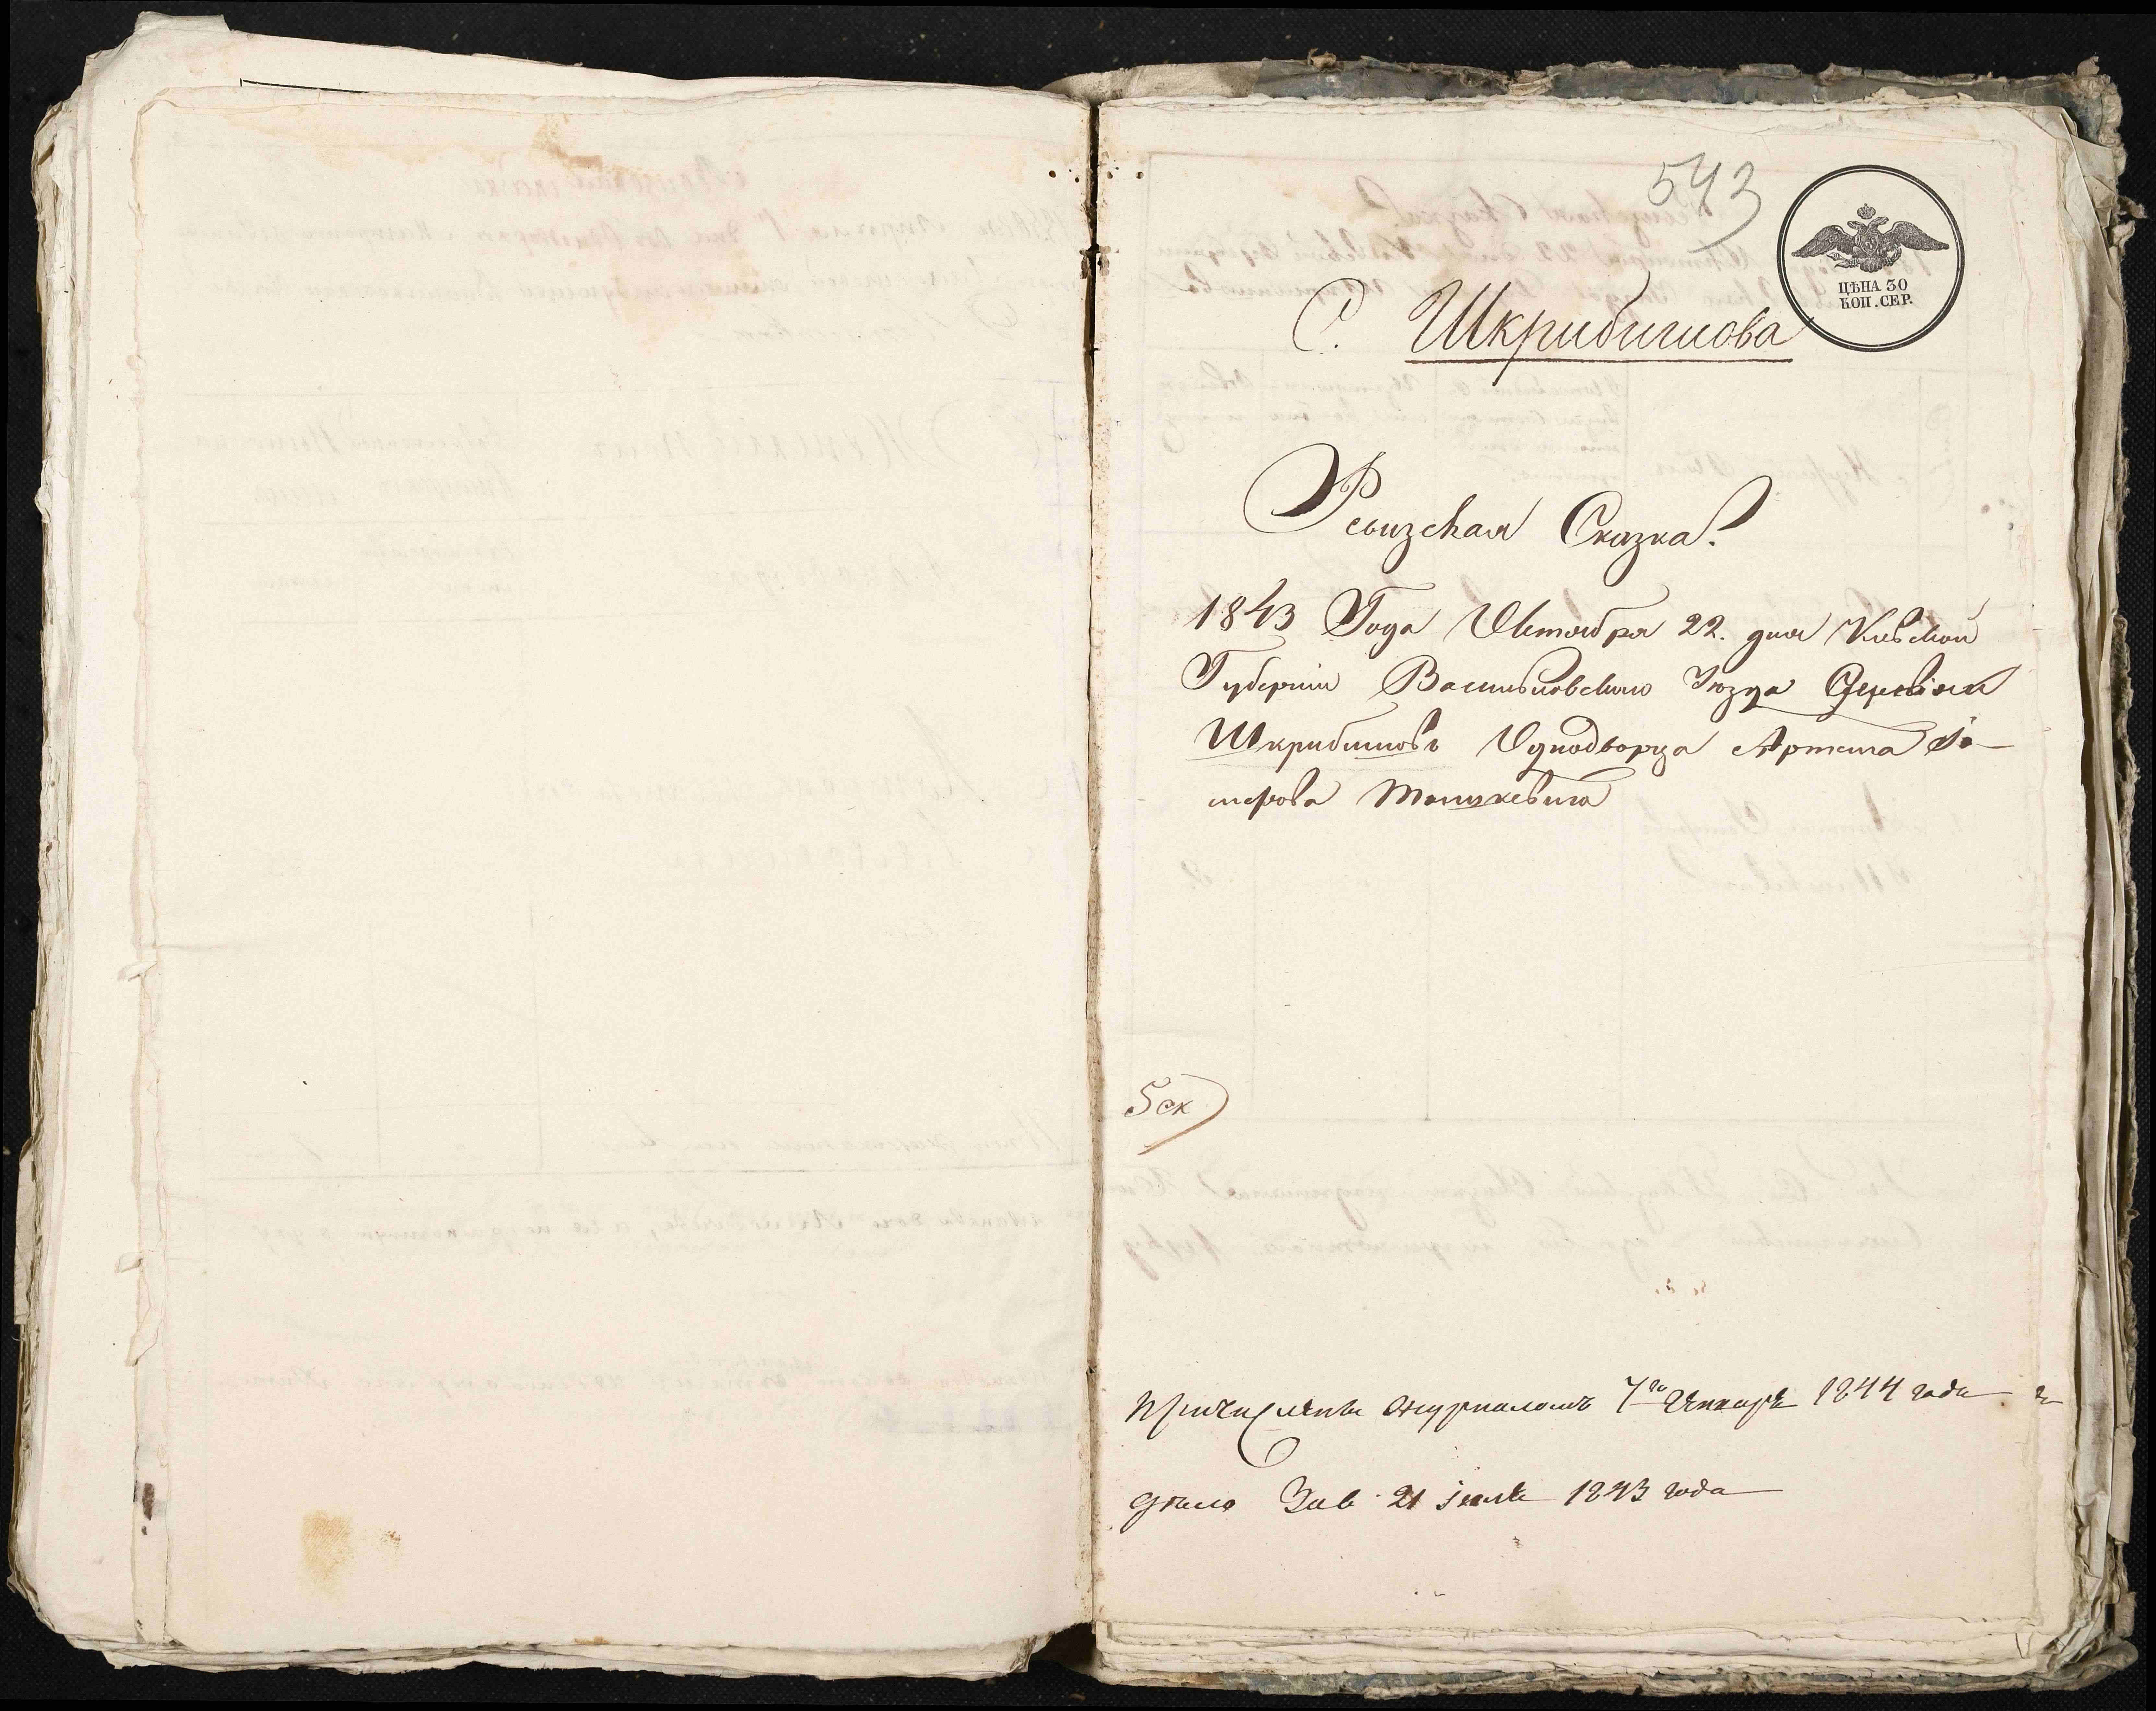 543
ЦѢНА 30
КОП. СЕР.
С. Шкрибишова
Ревизская Сказка.
1843 Года Октября 22. дня Кіевской
Губерніи Васильковскаго Уѣзда Деревни
Шкрибишовъ Однодворца Артема
Янушкевича
5 ск
Причислены журналомъ 7го Генваря 1844 года
дѣло 21 іюля 1843 года